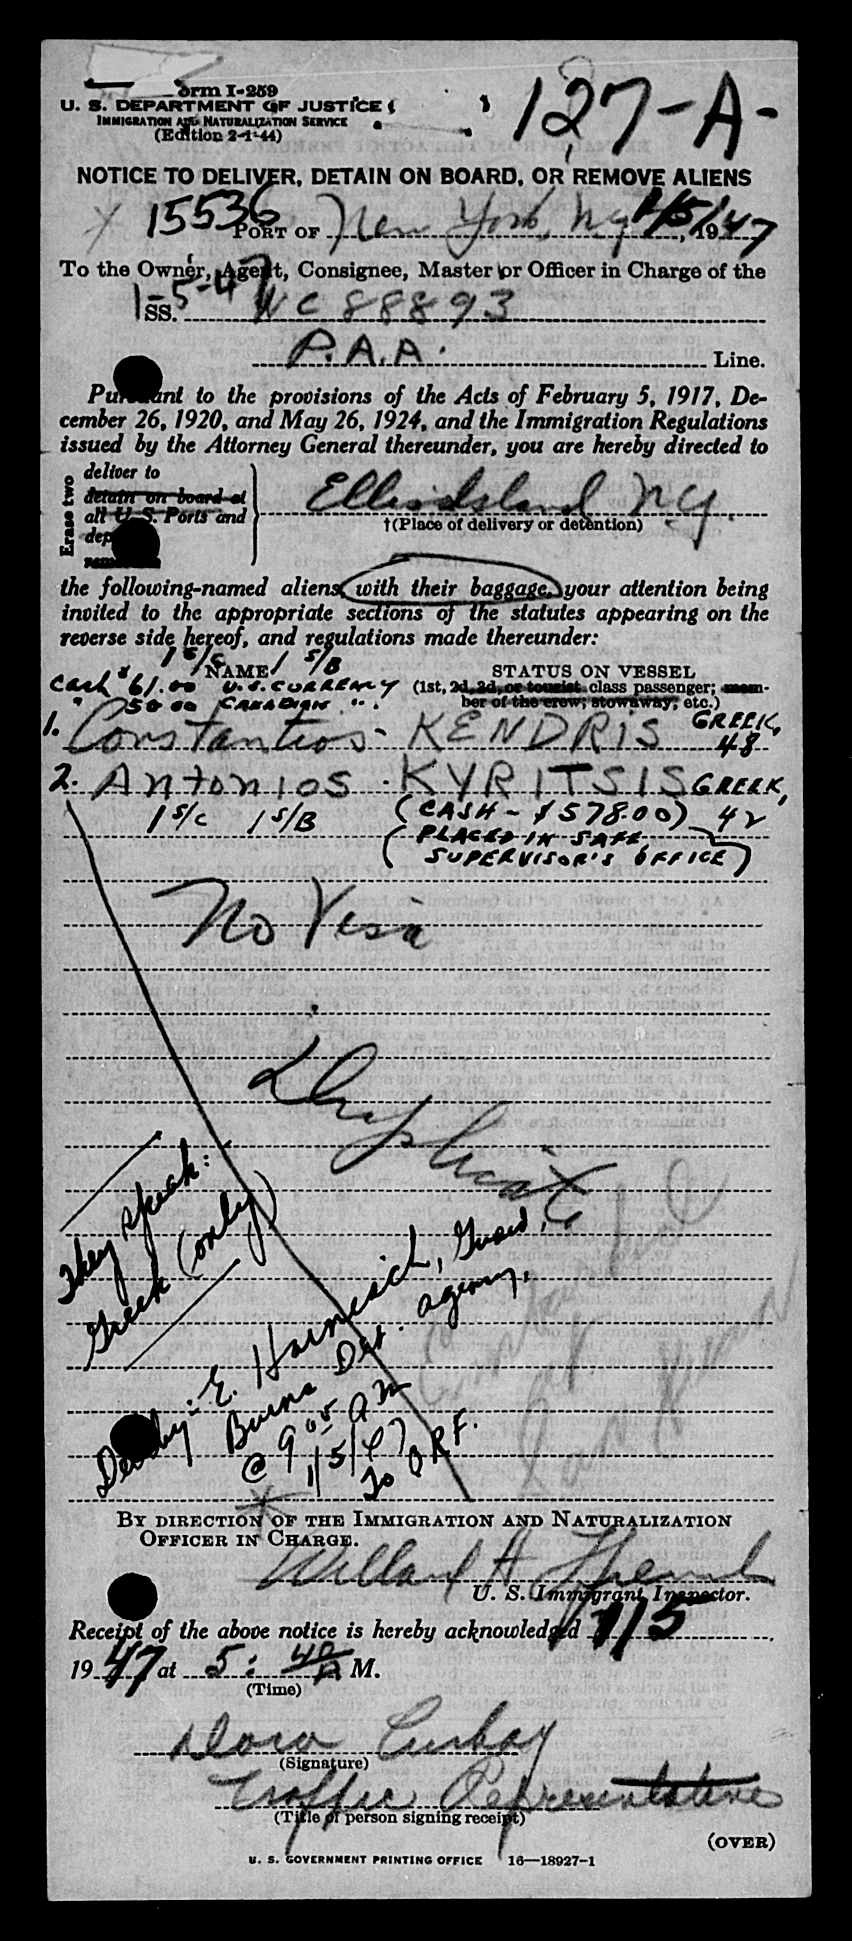 orm I-259
U. S. DEPARTMENT OF JUSTICE
IMMIGRATION AND NATURALIZATION SERVICE
(Edition 2-1-44)
127-A-
NOTICE TO DELIVER, DETAIN ON BOARD, OR REMOVE ALIENS
15536
PORT OF New York, N.Y. 1/5/, 1947
To the Owner, Agent, Consignee, Master or Officer in Charge of the
1-5-47
SS. NC 88893
P.A.A. Line.
Pursuant to the provisions of the Acts of February 5, 1917, De-
cember 26, 1920, and May 26, 1924, and the Immigration Regulations
issued by the Attorney General thereunder, you are hereby directed to
Erase two
deliver to
detain on board at
all U. S. Ports and
dep
Ellis Island N.Y.
†(Place of delivery or detention)
the following-named aliens, with their baggage, your attention being
invited to the appropriate sections of the statutes appearing on the
reverse side hereof, and regulations made thereunder:
1 S/C 1 S/B
NAME
STATUS ON VESSEL
Cash $61.00 U.S. CURRENCY
(1st, 2d, 3d, or tourist class passenger; mem-
" 50.00 CANADIAN "
ber of the crew; stowaway; etc.)
1. Constantios - KENDRIS GREEK, 48
2. Antonios - KYRITSIS GREEK, 42
1 S/C 1 S/B (CASH - $578.00)
(PLACED IN SAFE,
SUPERVISOR'S OFFICE)
No Visa
Duplicate
They speak:
Greek (only)
Del by: E. Harnesich, Guard,
Burns Det. Agency,
@ 9:05 AM
1/5/47
To D.R.F.
BY DIRECTION OF THE IMMIGRATION AND NATURALIZATION
OFFICER IN CHARGE.
Willard H.
U. S. Immigrant Inspector.
Receipt of the above notice is hereby acknowledged 1/5
1947 at 5:40 A M.
(Time)
Dora
(Signature)
Traffic Representative
(Title of person signing receipt)
(OVER)
U. S. GOVERNMENT PRINTING OFFICE 16—18927-1